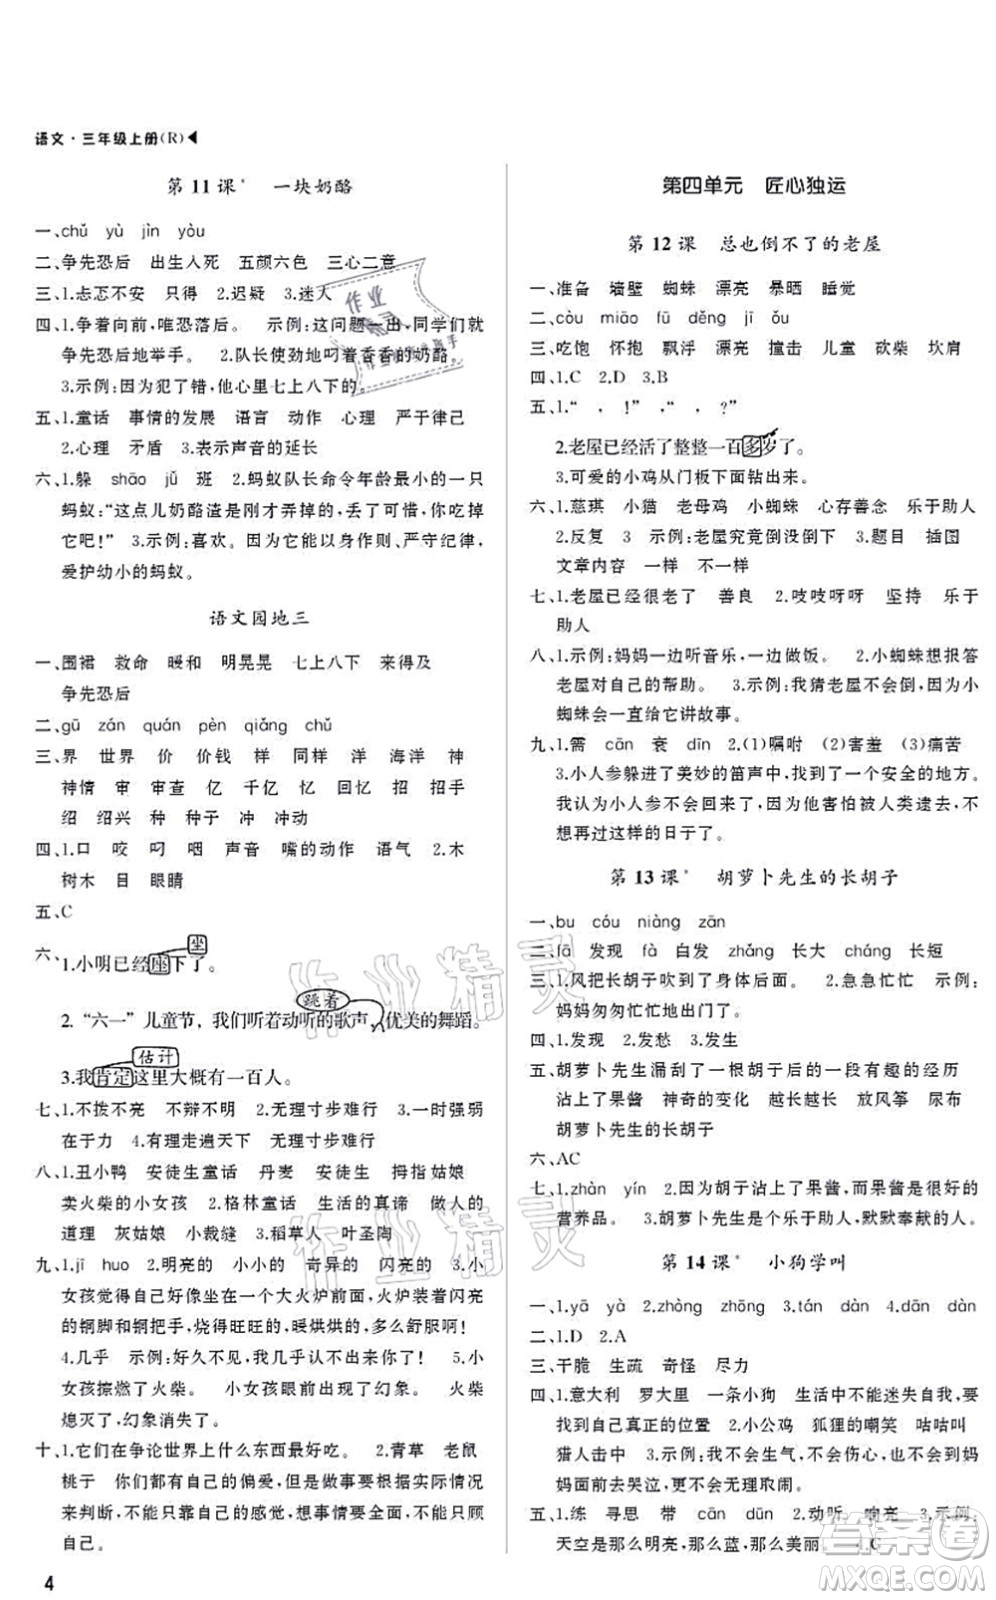 语文·三年级上册(R)
第11课* 一块奶酪
一、chǔ yù jìn yòu
二、争先恐后 出生入死 五颜六色 三心二意
三、1.忐忑不安 只得 2.迟疑 3.迷人
四、1.争着向前,唯恐落后。 示例:这问题一出,同学们就
争先恐后地举手。 2.队长使劲地叼着香香的奶酪。
3.示例:因为犯了错,他心里七上八下的。
五、1.童话 事情的发展 语言 动作 心理 严于律己
2.心理 矛盾 3.表示声音的延长
六、1.躲 shāo jǔ 班 2.蚂蚁队长命令年龄最小的一只
蚂蚁:“这点儿奶酪渣是刚才弄掉的,丢了可惜,你吃掉
它吧!” 3.示例:喜欢。因为它能以身作则、严守纪律,
爱护幼小的蚂蚁。
语文园地三
一、围裙 救命 暖和 明晃晃 七上八下 来得及
争先恐后
二、gū zán quán pèn qiǎng chǔ
三、界 世界 价 价钱 样 同样 洋 海洋 神
神情 审 审查 亿 千亿 忆 回忆 招 招手
绍 绍兴 种 种子 冲 冲动
四、1.口 咬 叼 咽 声音 嘴的动作 语气 2.木
树木 目 眼睛
五、C
六、1.小明已经座下了。 坐
2.“六一”儿童节,我们听着动听的歌声,优美的舞蹈。 跳着
3.我肯定这里大概有一百人。 估计
七、1.不拨不亮 不辩不明 2.无理寸步难行 3.一时强弱
在于力 4.有理走遍天下 无理寸步难行
八、1.丑小鸭 安徒生童话 丹麦 安徒生 拇指姑娘
卖火柴的小女孩 2.格林童话 生活的真谛 做人的
道理 灰姑娘 小裁缝 3.稻草人 叶圣陶
九、1.jī huo 2.明亮的 小小的 奇异的 闪亮的 3.小
女孩觉得自己好像坐在一个大火炉前面,火炉装着闪亮
的铜脚和铜把手,烧得旺旺的,暖烘烘的,多么舒服啊!
4.几乎 示例:好久不见,我们几乎认不出来了。 5.小
女孩擦燃了火柴。 女孩眼前出现了幻象。 火柴
熄灭了,幻象消失了。
十、1.它们在争论世界上什么东西最好吃。 2.青草 老鼠
桃子 你们都有各自的偏爱,但是做事要根据实际情况
来判断,不能只凭自己的感觉,想事情做事情不能只顾
自己。
第四单元 匠心独运
第12课 总也倒不了的老屋
一、准备 墙壁 蜘蛛 漂亮 暴晒 睡觉
二、còu miāo fū děng jī ǒu
三、吃饱 怀抱 飘浮 漂亮 撞击 儿童 砍柴 坎肩
四、1.C 2.D 3.B
五、1.“ , !” “ , ?”
2.老屋已经活了整整一百多岁了。
3.可爱的小鸡从门板下面钻出来。
六、1.慈琪 小猫 老母鸡 小蜘蛛 心存善念 乐于助人
2.反复 3 示例:老屋究竟倒没倒下 3.题目 插图
文章内容 一样 不一样
七、1.老屋已经很老了 善良 2.吱吱呀呀 坚持 乐于
助人
八、1.示例:妈妈一边听音乐,一边做饭。 2.小蜘蛛想报答
老屋对自己的帮助。 3.示例:我猜老屋不会倒,因为小
蜘蛛会一直给它讲故事。
九、1.需 cān 衰 dīn 2.(1)嘱咐 (2)害羞 (3)痛苦
3.小人参躲进了美妙的笛声中,找到了一个安全的地方。
我认为小人参不会回来了,因为他害怕被人类逮走,不
想再过这样的日子了。
第13课* 胡萝卜先生的长胡子
一、bu cóu niàng zān
二、fā 发现 fà 白发 zhǎng 长大 cháng 长短
三、1.风把长胡子吹到了身体后面。 2.急急忙忙 示例:
妈妈匆匆忙忙地出门了。
四、1.发现 2.发愁 3.发生
五、胡萝卜先生漏刮了一根胡子后发生的有趣的经历
胡子沾上了果酱 神奇的变化 越长越长 放风筝 尿布
胡萝卜先生的长胡子
六、AC
七、1.zhàn yín 2.因为胡子沾上了果酱,而果酱是很好的
营养品。 3.胡萝卜先生是个乐于助人,默默奉献的人。
第14课* 小狗学叫
一、1.yā yà 2.zhòng zhōng 3.tán dàn 4.dān dàn
二、1.D 2.A
三、干脆 生疏 奇怪 尽力
四、1.意大利 罗大里 一条小狗 生活中不能迷失自我,
要找到自己真正的位置 2.小公鸡 狐狸的嘲笑 咕咕叫
猎人击出 3.示例:我不会生气,不会伤心,也不会到妈
妈面前去哭泣,更不会无理取闹。
五、1.练 寻思 带 cān dūn 2.动听 响亮 3.示例:
天空是那么明亮,那么蓝,那么美丽。 4.C
4
作业精灵
答案圈
MXQE.COM